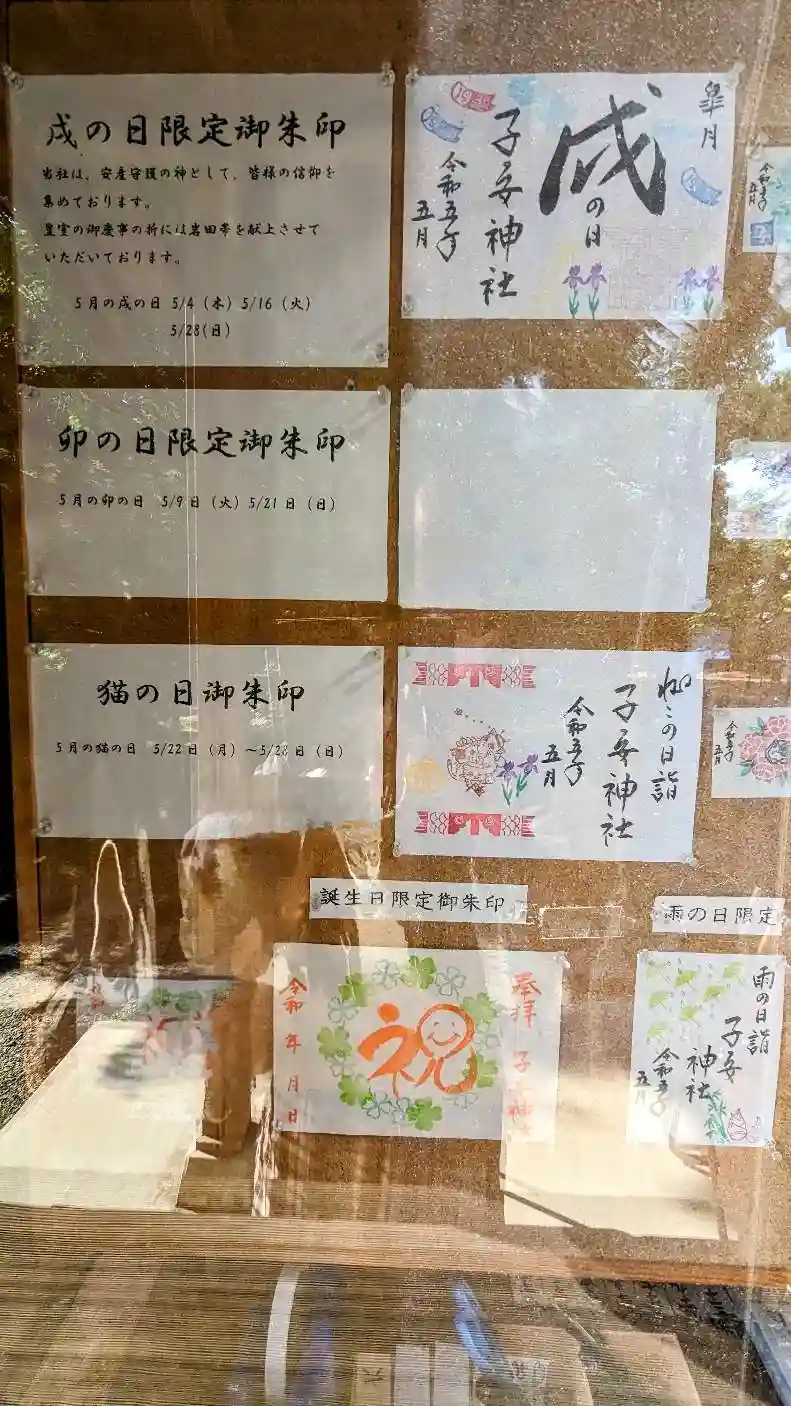 戌の日限定御朱印
当社は、安産守護の神として、皆様の信仰を
集めております。
皇室の御慶事の折には岩田帯を献上させて
いただいております。
5月の戌の日 5/4（木）5/16（火）
5/28（日）
皐月
戌の日
子安神社
令和五年
五月
卯の日限定御朱印
5月の卯の日 5/9日（火）5/21日（日）
猫の日御朱印
5月の猫の日 5/22日（月）～5/28日（日）
ねこの日詣
子安神社
令和五年
五月
令和五年
五月
令和五年
五月
誕生日限定御朱印
雨の日限定
奉拝 子安神
祝
令和 年 月 日
雨の日詣
子安
神社
令和五年
五月